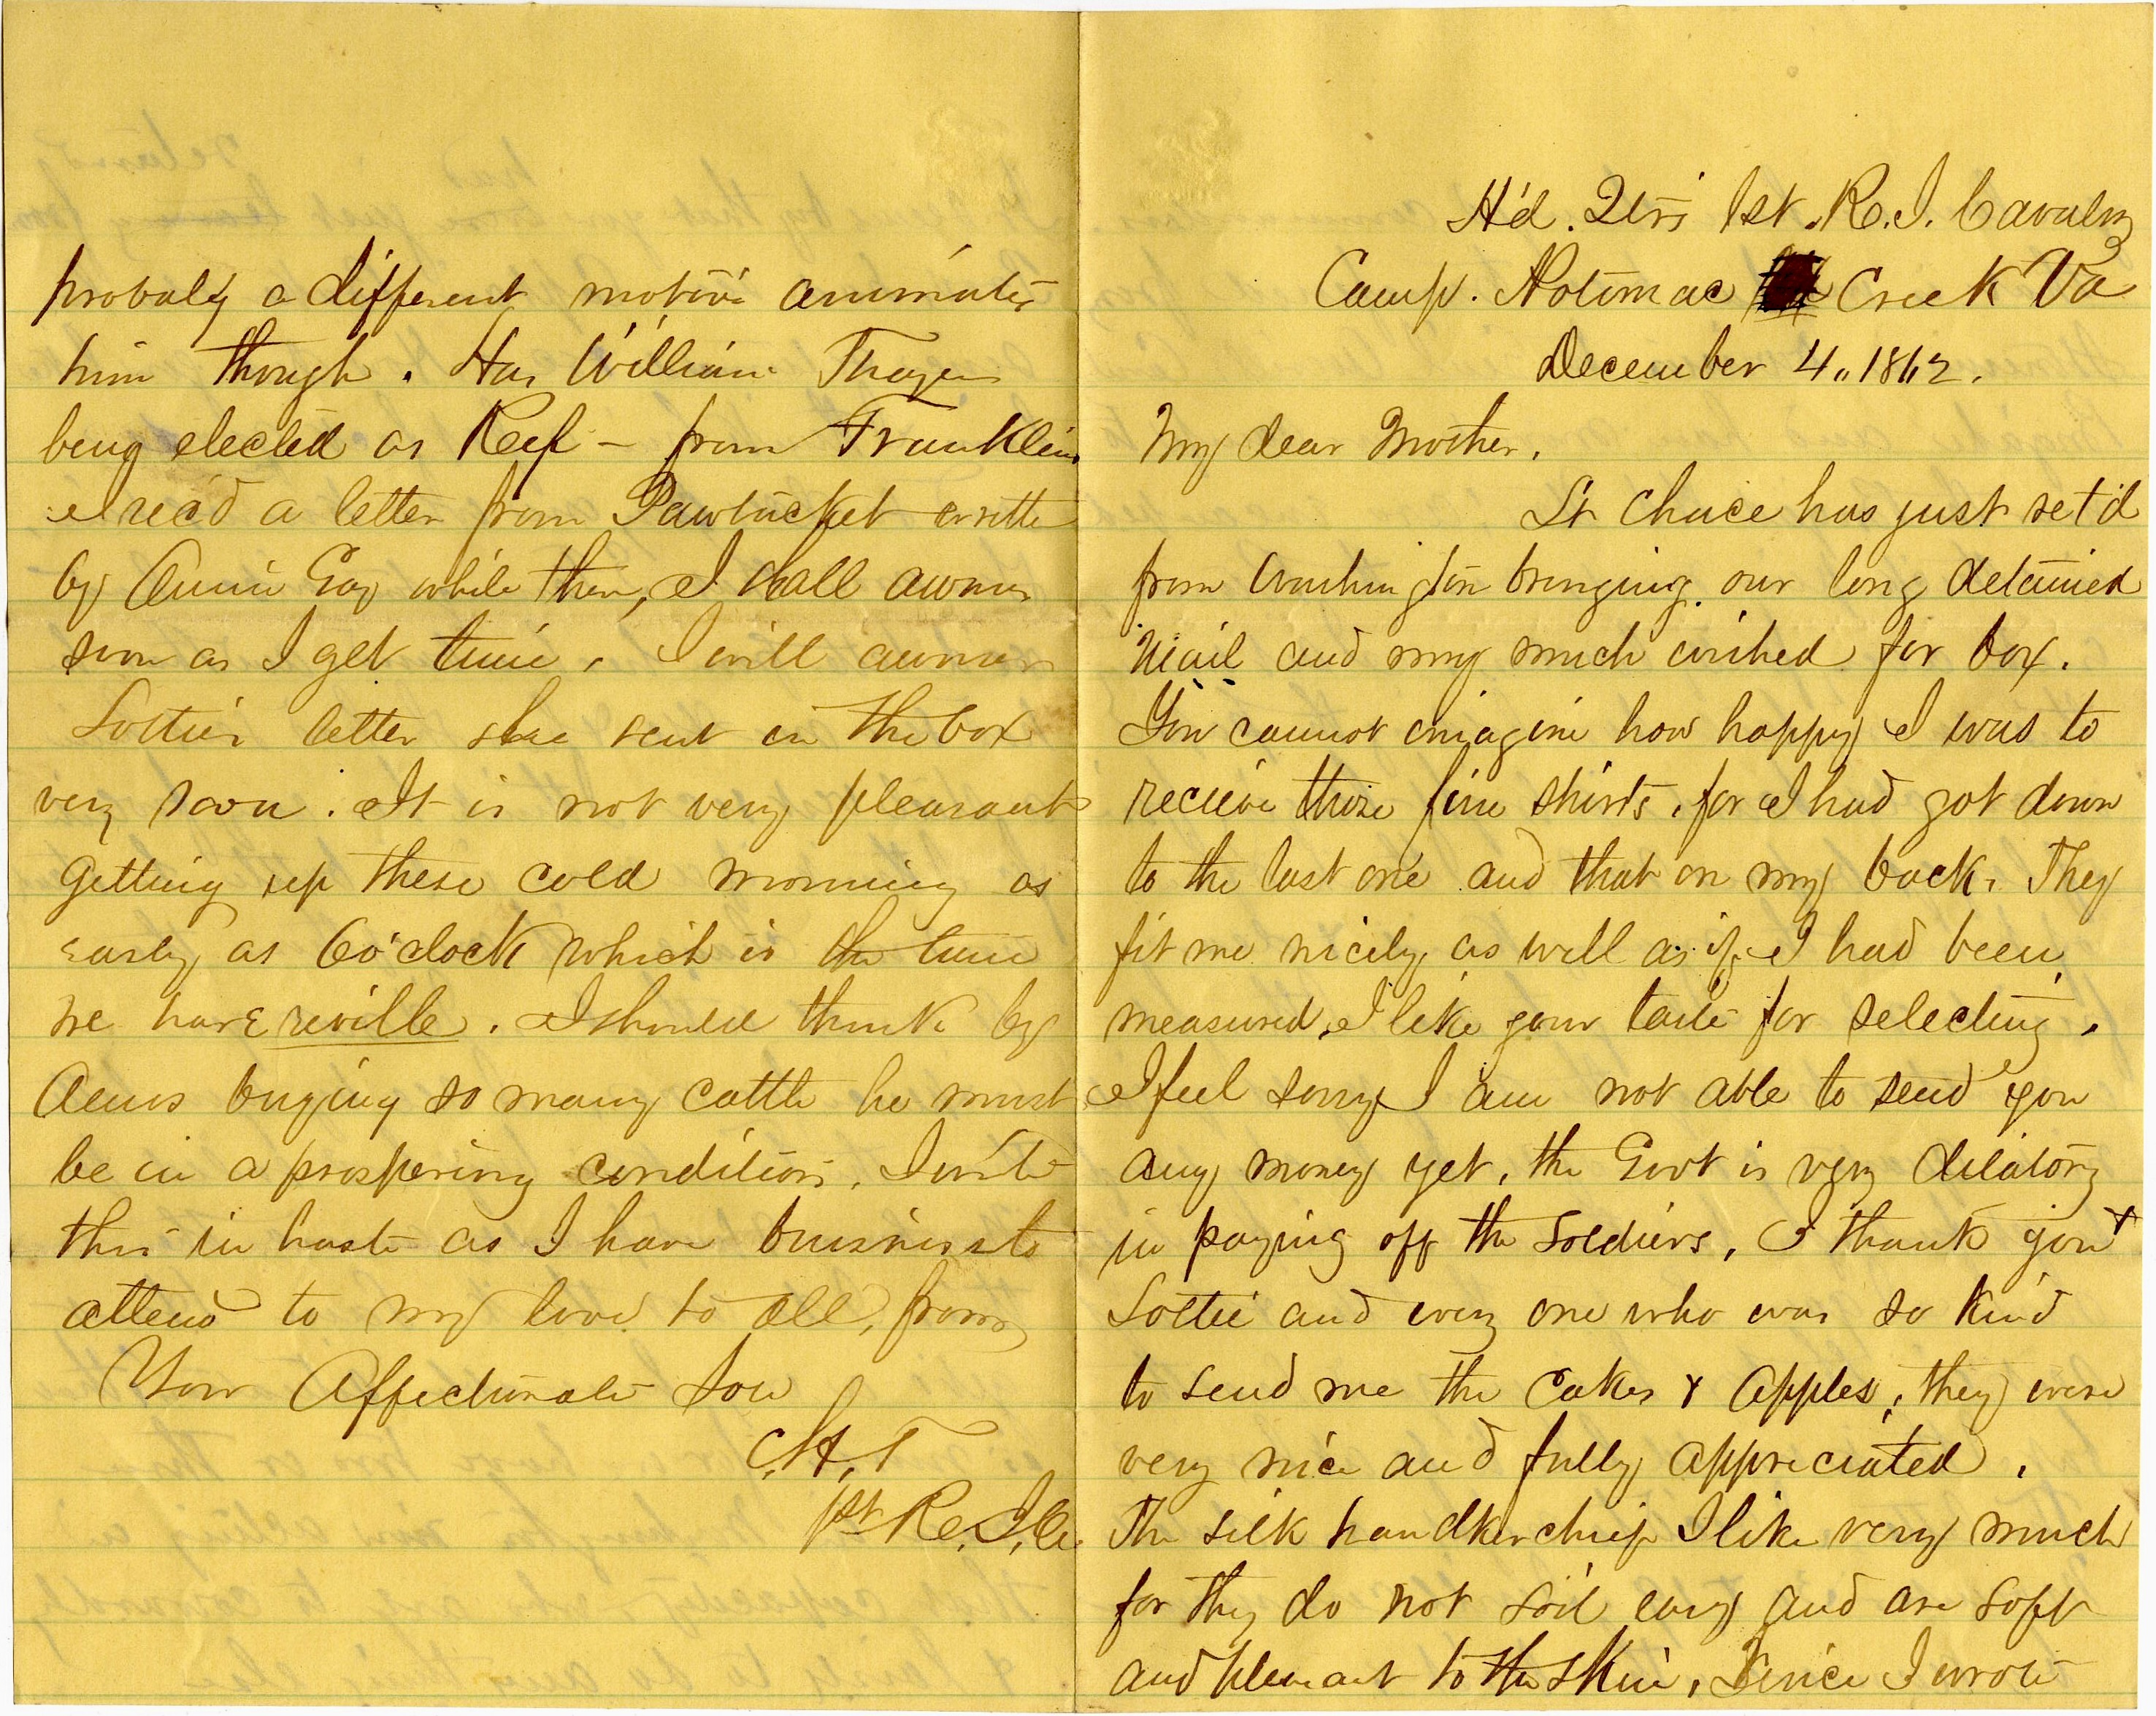 H'd. Qtrs 1st. R.I. Cavalry
Camp. Potomac Creek Va
December 4,, 1862.
My dear Mother.
Lt Chace has just ret'd
from Washington bringing our long detained
mail and my much wished for box.
You cannot imagine how happy I was to
recieve those fine shirts, for I had got down
to the last one and that on my back. They
fit me nicely, as well as if I had been
measured, I like your taste for selecting.
I feel sorry I am not able to send you
any money yet, the Govt is very dilatory
in paying off the soldiers. I thank you &
Lottie and every one who was so kind
to send me the Cakes & Apples, they were
very nice and fully appreciated.
The silk handkerchief I like very much
for they do not soil easy and are soft
and pleasant to the skin, Since I wrote
probaly a different motive animates
him though. Has William Thayer
being elected as Rep - from Franklin
I rec'd a letter from Pawtucket writte
by Annie Gay while there, I shall answer
soon as I get time. I will answer
Lottie's letter she sent in the box
very soon. It is not very pleasant
getting up these cold morning as
early as 6 o'clock which is the time
we have reville. I should think by
Amos buying so many cattle he must
be in a prospering condition. I write
this in haste as I have business to
attend to my love to all, from
Your Affectionate Son
C.H.T
1st R.I.C.